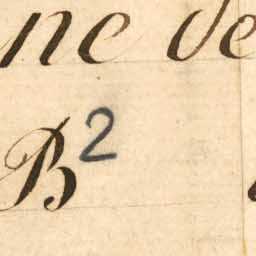 ne de
B²